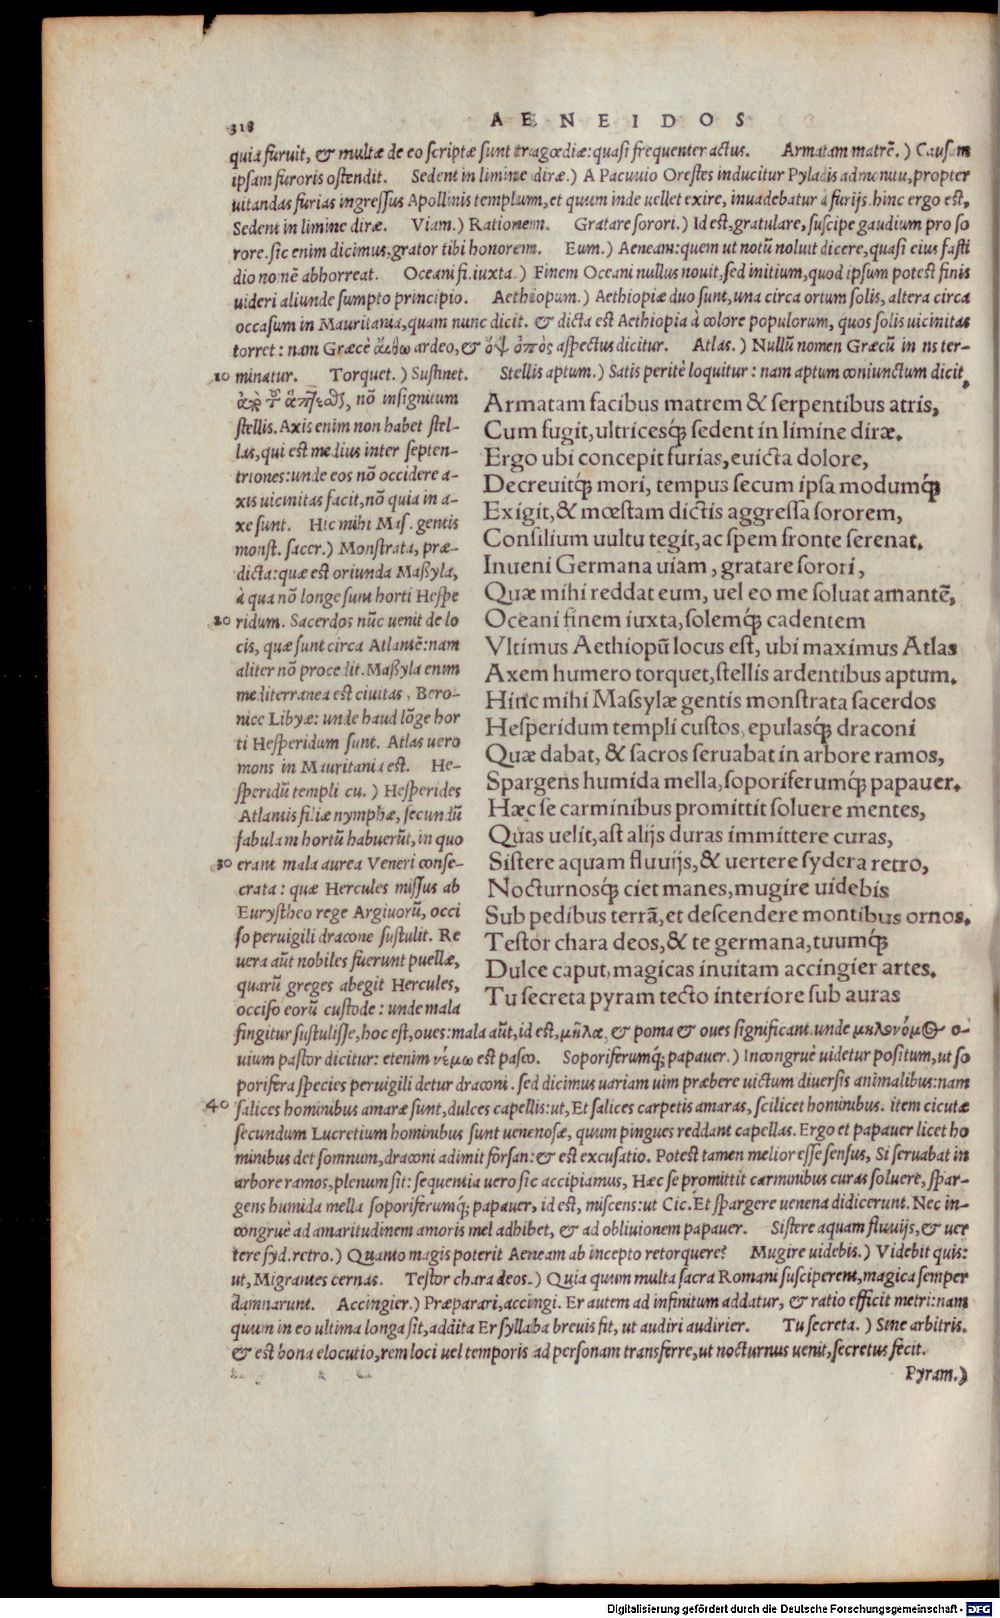 318
AENEIDOS
quia furuit, & multæ de eo scriptæ sunt tragœdiæ: quasi frequenter actus. Armatam matrē.) Causam
ipsam furoris ostendit. Sedent in limine diræ.) A Pacuuio Orestes inducitur Pyladis admonitu, propter
uitandas furias ingressus Apollinis templum, et quum inde uellet exire, inuadebatur à furijs. hinc ergo est,
Sedent in limine diræ. Viam.) Rationem. Gratare sorori.) Id est, gratulare, suscipe gaudium pro so
rore. sic enim dicimus, grator tibi honorem. Eum.) Aeneam: quem ut notū noluit dicere, quasi eius fasti
dio nonē abhorreat. Oceani fi. iuxta.) Finem Oceani nullus nouit, sed initium, quod ipsum potest finis
uideri aliunde sumpto principio. Aethiopum.) Aethiopiæ duo sunt, una circa ortum solis, altera circa
occasum in Mauritania, quam nunc dicit. & dicta est Aethiopia à colore populorum, quos solis uicinitas
torret: nam Græcè ἄιθω ardeo, & ὄψ ὀπὸς aspectus dicitur. Atlas.) Nullū nomen Græcū in ns ter-
10 minatur. Torquet.) Sustinet. Stellis aptum.) Satis peritè loquitur: nam aptum coniunctum dicit,
nō insignitum
stellis. Axis enim non habet stel-
las, qui est medius inter septen-
triones: unde eos nō occidere a-
xis uicinitas facit, nō quia in a-
xe sunt. Hic mihi Mas. gentis
monst. sacer.) Monstrata, præ-
dicta: quæ est oriunda Maßyla,
à qua nō longe sunt horti Hespe
20 ridum. Sacerdos nūc uenit de lo
cis, quæ sunt circa Atlantē: nam
aliter nō procedit. Maßyla enim
mediterranea est ciuitas, Bero-
nice Libyæ: unde haud lōge hor
ti Hesperidum sunt. Atlas uero
mons in Mauritania est. He-
speridū templi cu.) Hesperides
Atlantis filiæ nymphæ, secundū
fabulam hortū habuerūt, in quo
30 erant mala aurea Veneri conse-
crata: quæ Hercules missus ab
Eurystheo rege Argiuorū, occi
so peruigili dracone sustulit. Re
uera aūt nobiles fuerunt puellæ,
quarū greges abegit Hercules,
occiso eorū custode: unde mala
Armatam facibus matrem & serpentibus atris,
Cum fugit, ultricesq́ꝫ sedent in limine diræ.
Ergo ubi concepit furias, euicta dolore,
Decreuitq́ꝫ mori, tempus secum ipsa modumq́ꝫ
Exigit, & mœstam dictis aggressa sororem,
Consilium uultu tegit, ac spem fronte serenat.
Inueni Germana uiam, gratare sorori,
Quæ mihi reddat eum, uel eo me soluat amantē,
Oceani finem iuxta, solemq́ꝫ cadentem
Vltimus Aethiopū locus est, ubi maximus Atlas
Axem humero torquet, stellis ardentibus aptum.
Hinc mihi Massylæ gentis monstrata sacerdos
Hesperidum templi custos, epulasq́ꝫ draconi
Quæ dabat, & sacros seruabat in arbore ramos,
Spargens humida mella, soporiferumq́ꝫ papauer.
Hæc se carminibus promittit soluere mentes,
Quas uelit, ast alijs duras immittere curas,
Sistere aquam fluuijs, & uertere sydera retro,
Nocturnosq́ꝫ ciet manes, mugire uidebis
Sub pedibus terrā, et descendere montibus ornos.
Testor chara deos, & te germana, tuumq́ꝫ
Dulce caput, magicas inuitam accingier artes.
Tu secreta pyram tecto interiore sub auras
fingitur sustulisse, hoc est, oues: mala aūt, id est, μῆλα, & poma & oues significant. unde μηλονόμος o-
uium pastor dicitur: etenim νέμω est pasco. Soporiferumq́ꝫ papauer.) Incongruè uidetur positum, ut so
porifera species peruigili detur draconi. sed dicimus uariam uim præbere uictum diuersis animalibus: nam
40 salices hominibus amaræ sunt, dulces capellis: ut, Et salices carpetis amaras, scilicet hominibus. item cicutæ
secundum Lucretium hominibus sunt uenenosæ, quum pingues reddant capellas. Ergo et papauer licet ho
minibus det somnum, draconi adimit forsan: & est excusatio. Potest tamen melior esse sensus, Si seruabat in
arbore ramos, plenum sit: sequentia uero sic accipiamus, Hæc se promittit carminibus curas soluere, spar-
gens humida mella soporiferumq́ꝫ papauer, id est, miscens: ut Cic. Et spargere uenena didicerunt. Nec in-
congruè ad amaritudinem amoris mel adhibet, & ad obliuionem papauer. Sistere aquam fluuijs, & uer
tere syd. retro.) Quanto magis poterit Aeneam ab incepto retorquere? Mugire uidebis.) Videbit quis:
ut, Migrantes cernas. Testor chara deos.) Quia quum multa sacra Romani susciperent, magica semper
damnarunt. Accingier.) Præparari, accingi. Er autem ad infinitum addatur, & ratio efficit metri: nam
quum in eo ultima longa sit, addita Er syllaba breuis fit, ut audiri audirier. Tu secreta.) Sine arbitris.
& est bona elocutio, rem loci uel temporis ad personam transferre, ut nocturnus uenit, secretus fecit.
Pyram.)
Digitalisierung gefördert durch die Deutsche Forschungsgemeinschaft - DFG